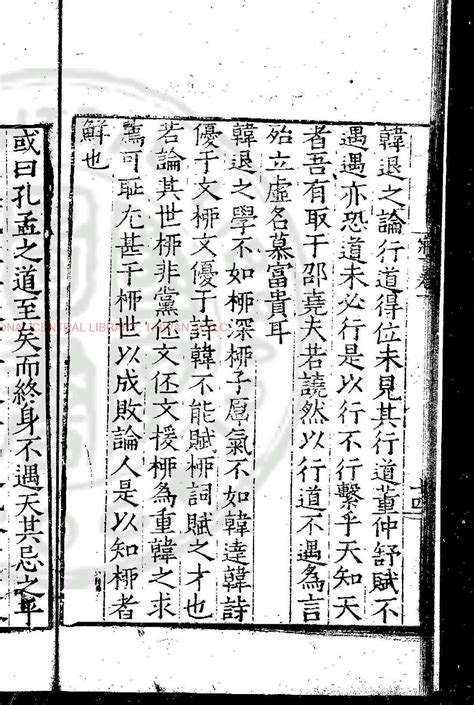 韓退之論行道得位未見其行道董仲舒賦不
遇遇亦恐道未必行是以行不行繫乎天知天
者吾有取于邵堯夫若譊然以行道不遇為言
殆立虛名慕富貴耳
韓退之學不如栁深栁子厚氣不如韓達韓詩
優于文栁文優于詩韓不能賦栁詞賦之才也
若論其世栁非黨伾文伾文援栁為重韓之求
薦可耻尤甚于栁世以成敗論人是以知栁者
鮮也
或曰孔孟之道至矣而終身不遇天其忌之乎